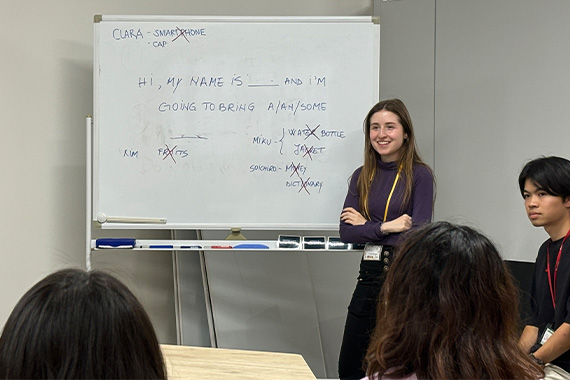 CLARA - SMARTPHONE
- CAP
HI, MY NAME IS _____ AND I'M
GOING TO BRING A/AN/SOME
MIKU - WATER BOTTLE
JACKET
KIM FRUITS
SOICHIRO - MONEY
DICTIONARY